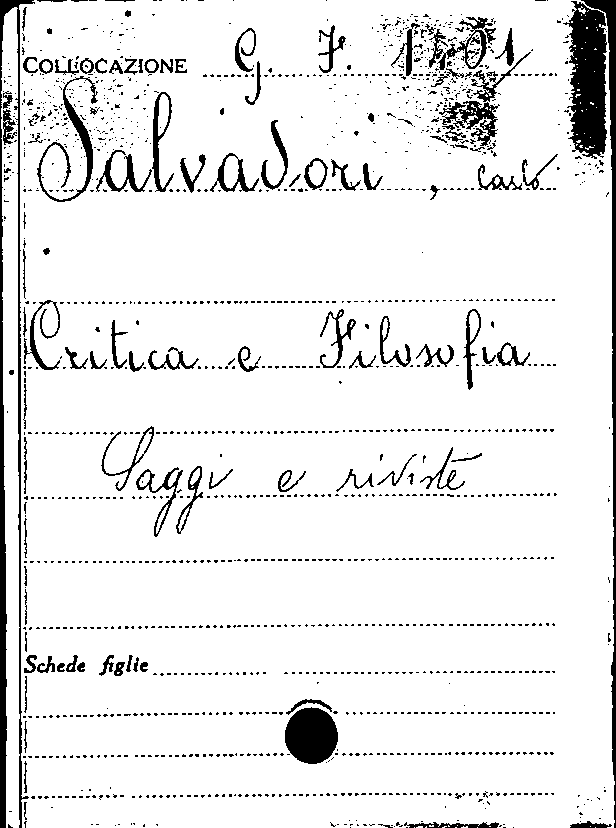 COLLOCAZIONE G. F. 1401
Salvadori, Carlo
Critica e Filosofia
Saggi e riviste
Schede figlie